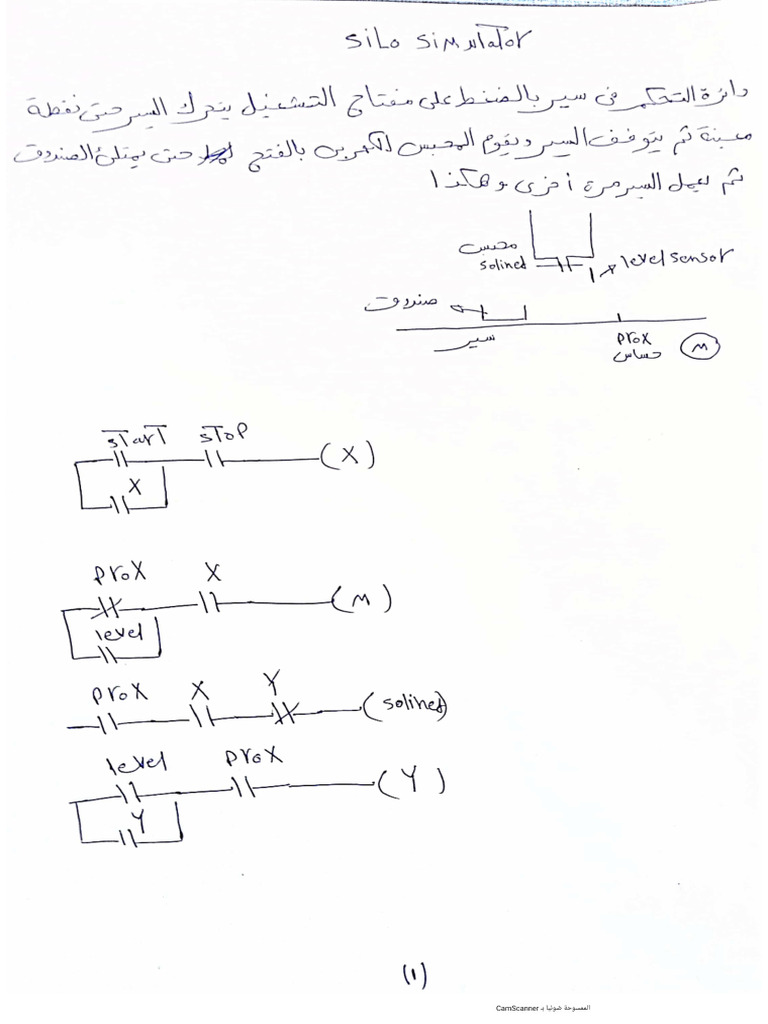 SiLo Simulator
دائرة التحكم فى سير بالضغط على مفتاح التشغيل يتحرك السير حتى نقطة
معينة ثم يتوقف السير ويقوم المحبس الكهربى بالفتح حتى يمتلئ الصندوق
ثم يعمل السير مرة أخرى وهكذا
محبس
solined
level sensor
صندوق
سير
Prox
حساس
M
START
STOP
(X)
X
Prox
X
(M)
level
Prox
X
Y
(solined)
level
Prox
(Y)
Y
(1)
الممسوحة ضوئيا بـ CamScanner